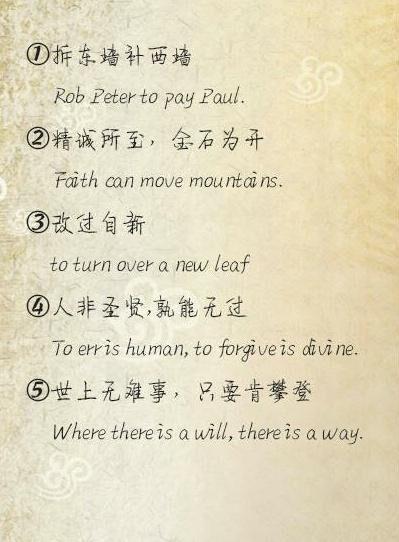 ①拆东墙补西墙
Rob Peter to pay Paul.
②精诚所至，金石为开
Faith can move mountains.
③改过自新
to turn over a new leaf
④人非圣贤,孰能无过
To err is human, to forgive is divine.
⑤世上无难事，只要肯攀登
Where there is a will, there is a way.